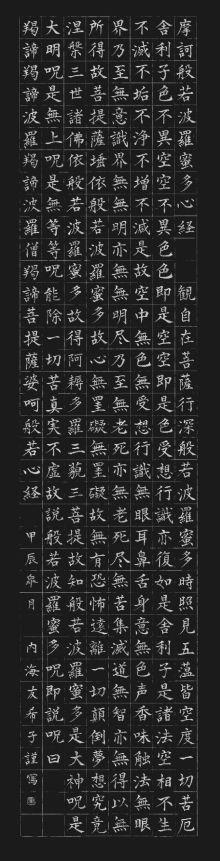 摩訶般若波羅蜜多心経　観自在菩薩行深般若波羅蜜多時照見五蘊皆空度一切苦厄
舎利子色不異空空不異色色即是空空即是色受想行識亦復如是舎利子是諸法空相不生
不滅不垢不浄不増不減是故空中無色無受想行識無眼耳鼻舌身意無色声香味触法無眼
界乃至無意識界無無明亦無無明尽乃至無老死亦無老死尽無苦集滅道無智亦無得以無
所得故菩提薩埵依般若波羅蜜多故心無罣礙無罣礙故無有恐怖遠離一切顛倒夢想究竟
涅槃三世諸佛依般若波羅蜜多故得阿耨多羅三藐三菩提故知般若波羅蜜多是大神呪是
大明呪是無上呪是無等等呪能除一切苦真実不虚故説般若波羅蜜多呪即説呪曰
羯諦羯諦波羅羯諦波羅僧羯諦菩提薩婆呵般若心経　甲辰皐月　内海友希子謹写